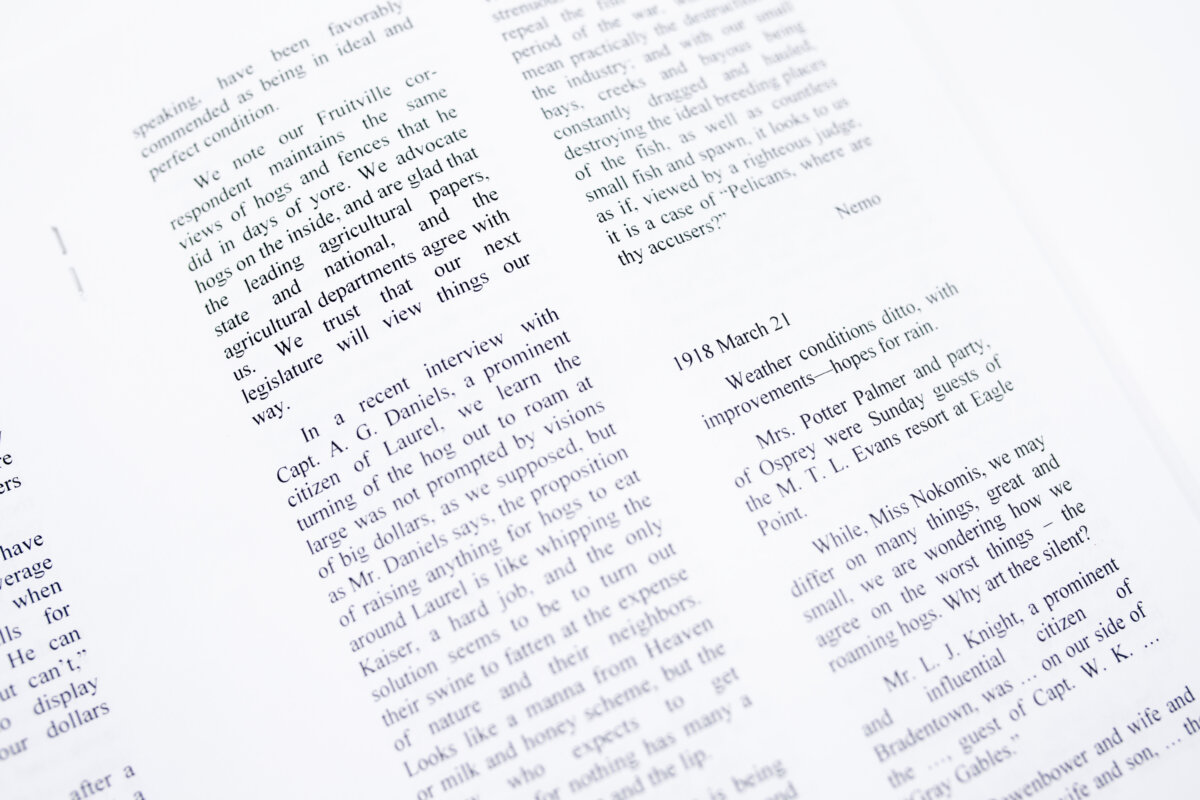 re
ers
have
verage
when
lls for
He can
ut can't,"
o display
our dollars
after a
a
speaking, have been favorably
commended as being in ideal and
perfect condition.
We note our Fruitville cor-
respondent maintains the same
views of hogs and fences that he
did in days of yore. We advocate
hogs on the inside, and are glad that
the leading agricultural papers,
state and national, and the
agricultural departments agree with
us. We trust that our next
legislature will view things our
way.
In a recent interview with
Capt. A. G. Daniels, a prominent
citizen of Laurel, we learn the
turning of the hog out to roam at
large was not prompted by visions
of big dollars, as we supposed, but
as Mr. Daniels says, the proposition
of raising anything for hogs to eat
around Laurel is like whipping the
Kaiser, a hard job, and the only
solution seems to be to turn out
their swine to fatten at the expense
of nature and their neighbors.
Looks like a manna from Heaven
or milk and honey scheme, but the
who expects to get
for nothing has many a
and the lip.
is being
and
repeal the
period of the war,
mean practically the destruction
the industry; and with our small
bays, creeks and bayous being
constantly dragged and hauled,
destroying the ideal breeding places
of the fish, as well as countless
small fish and spawn, it looks to us
as if, viewed by a righteous judge,
it is a case of "Pelicans, where are
thy accusers?"
Nemo
1918 March 21
Weather conditions ditto, with
improvements—hopes for rain.
Mrs. Potter Palmer and party,
of Osprey were Sunday guests of
the M. T. L. Evans resort at Eagle
Point.
While, Miss Nokomis, we may
differ on many things, great and
small, we are wondering how we
agree on the worst things – the
roaming hogs. Why art thee silent?
Mr. L. J. Knight, a prominent
and influential citizen of
Bradentown, was ... on our side of
the ..., guest of Capt. W. K. ...
"Gray Gables."
wenbower and wife and
wife and son, ... th